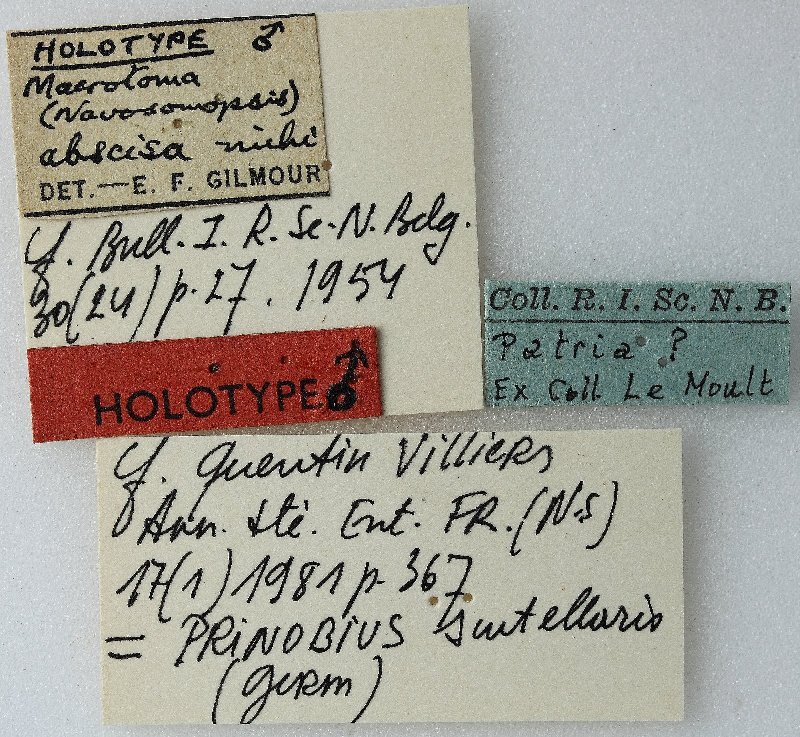 HOLOTYPE ♂
Macrotoma
(Navosomopsis)
abscisa mihi
DET.—E. F. GILMOUR
cf. Bull. I. R. Sc. N. Belg.
30(24) p. 27. 1954
HOLOTYPE ♂
Coll. R. I. Sc. N. B.
Patria ?
Ex Coll Le Moult
cf. Quentin Villiers
Ann. Sté. Ent. FR. (N.S)
17(1) 1981 p. 367
= PRINOBIUS scutellaris
(Germ)